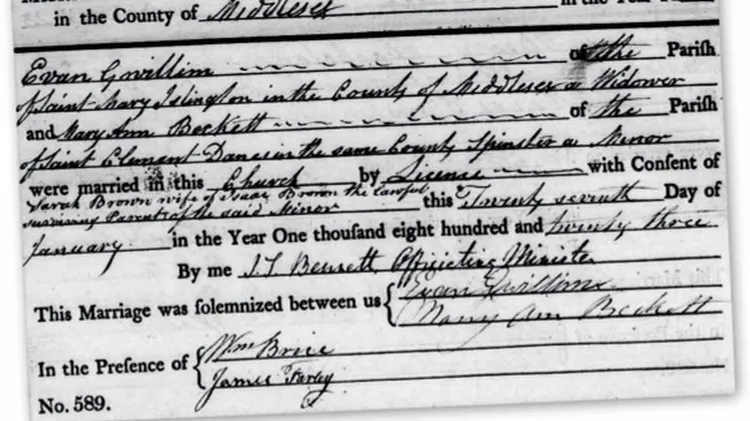 in the County of Middlesex in the Year
Evan Gwillim of the Pariſh
of Saint Mary Islington in the County of Middlesex a Widower
and Mary Ann Beckett of the Pariſh
of Saint Clement Danes in the same County Spinster a Minor
were married in this Church by License with Conſent of
Sarah Brown wife of Isaac Brown the lawful
surviving Parent of the said Minor this Twenty seventh Day of
January in the Year One thouſand eight hundred and twenty three
By me J. T. Bennett Officiating Minister
This Marriage was ſolemnized between us { Evan Gwillim
Mary Ann Beckett
In the Preſence of { Wm Brice
James Farley
No. 589.